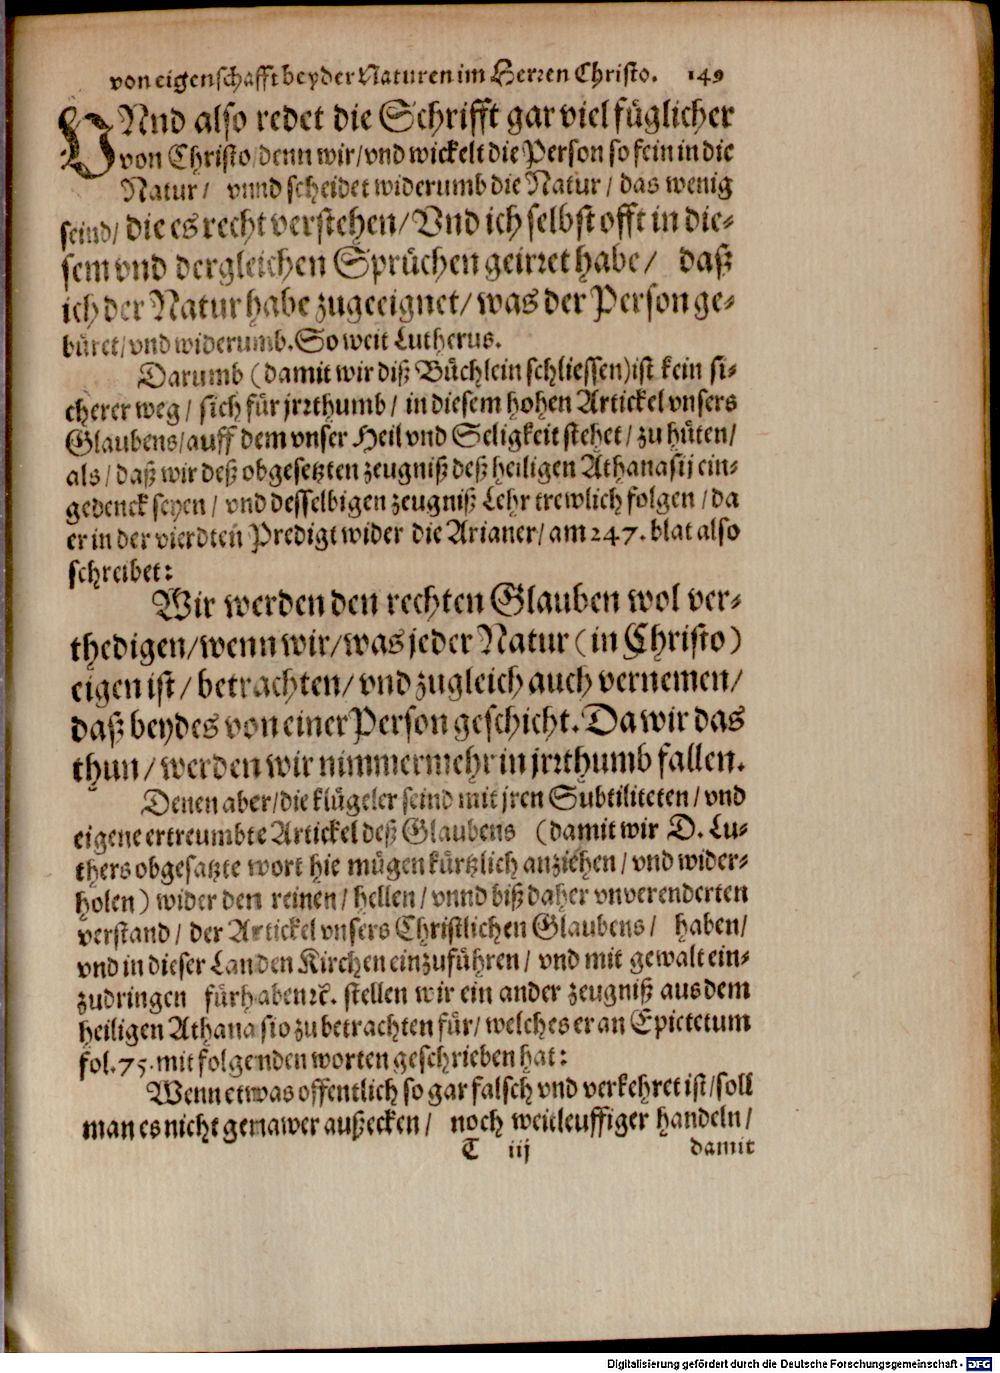 von eigenschafft beyder Naturen im Herren Christo. 149
VNnd also redet die Schrifft gar viel füglicher
von Christo/ denn wir/ vnd wickelt die Person so fein in die
Natur/ vnnd scheidet widerumb die Natur/ das wenig
seind/ die es recht verstehen/ Vnd ich selbst offt in die-
sem vnd dergleichen Sprüchen geirret habe/ daß
ich der Natur habe zugeeignet/ was der Person ge-
büret/ vnd widerumb. So weit Lutherus.
Darumb (damit wir diß Büchlein schliessen) ist kein si-
cherer weg/ sich für jrrthumb/ in diesem hohen Artickel vnsers
Glaubens/ auff dem vnser Heil vnd Seligkeit stehet/ zu hüten/
als/ daß wir deß obgesetzten zeugniß deß heiligen Athanasij ein-
gedenck seyen/ vnd desselbigen zeugniß Lehr trewlich folgen/ da
er in der vierdten Predigt wider die Arianer/ am 247. blat also
schreibet:
Wir werden den rechten Glauben wol ver-
thedigen/ wenn wir/ was jeder Natur (in Christo)
eigen ist/ betrachten/ vnd zugleich auch vernemen/
daß beydes von einer Person geschicht. Da wir das
thun/ werden wir nimmermehr in jrrthumb fallen.
Denen aber/ die klügeler seind mit jren Subtiliteten/ vnd
eigene ertreumbte Artickel deß Glaubens (damit wir D. Lu-
thers obgesatzte wort hie mügen kürtzlich anziehen/ vnd wider-
holen) wider den reinen/ hellen/ vnnd biß daher vnverenderten
verstand/ der Artickel vnsers Christlichen Glaubens/ haben/
vnd in dieser Landen Kirchen einzuführen/ vnd mit gewalt ein-
zudringen fürhaben ꝛc. stellen wir ein ander zeugniß aus dem
heiligen Athanasio zu betrachten für/ welches er an Epictetum
fol. 75. mit folgenden worten geschrieben hat:
Wenn etwas offentlich so gar falsch vnd verkehret ist/ soll
man es nicht genawer außecken/ noch weitleuffiger handeln/
T iij damit
Digitalisierung gefördert durch die Deutsche Forschungsgemeinschaft - DFG